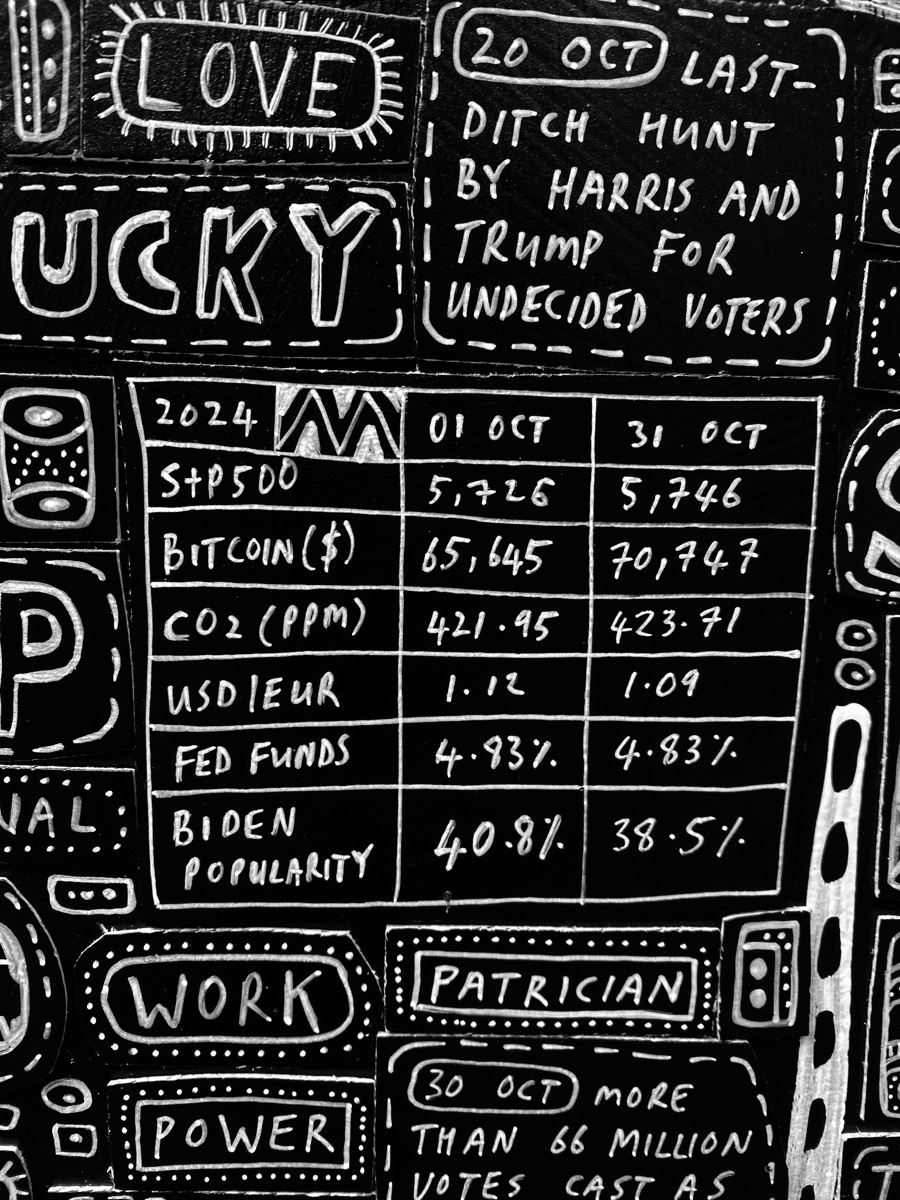 LOVE
20 OCT LAST-
DITCH HUNT
BY HARRIS AND
TRUMP FOR
UNDECIDED VOTERS
UCKY
2024 01 OCT 31 OCT
S+P500 5,726 5,746
BITCOIN($) 65,645 70,747
CO2 (PPM) 421.95 423.71
USD/EUR 1.12 1.09
FED FUNDS 4.83% 4.83%
BIDEN
POPULARITY 40.8% 38.5%
P
NAL
WORK
PATRICIAN
POWER
30 OCT MORE
THAN 66 MILLION
VOTES CAST AS